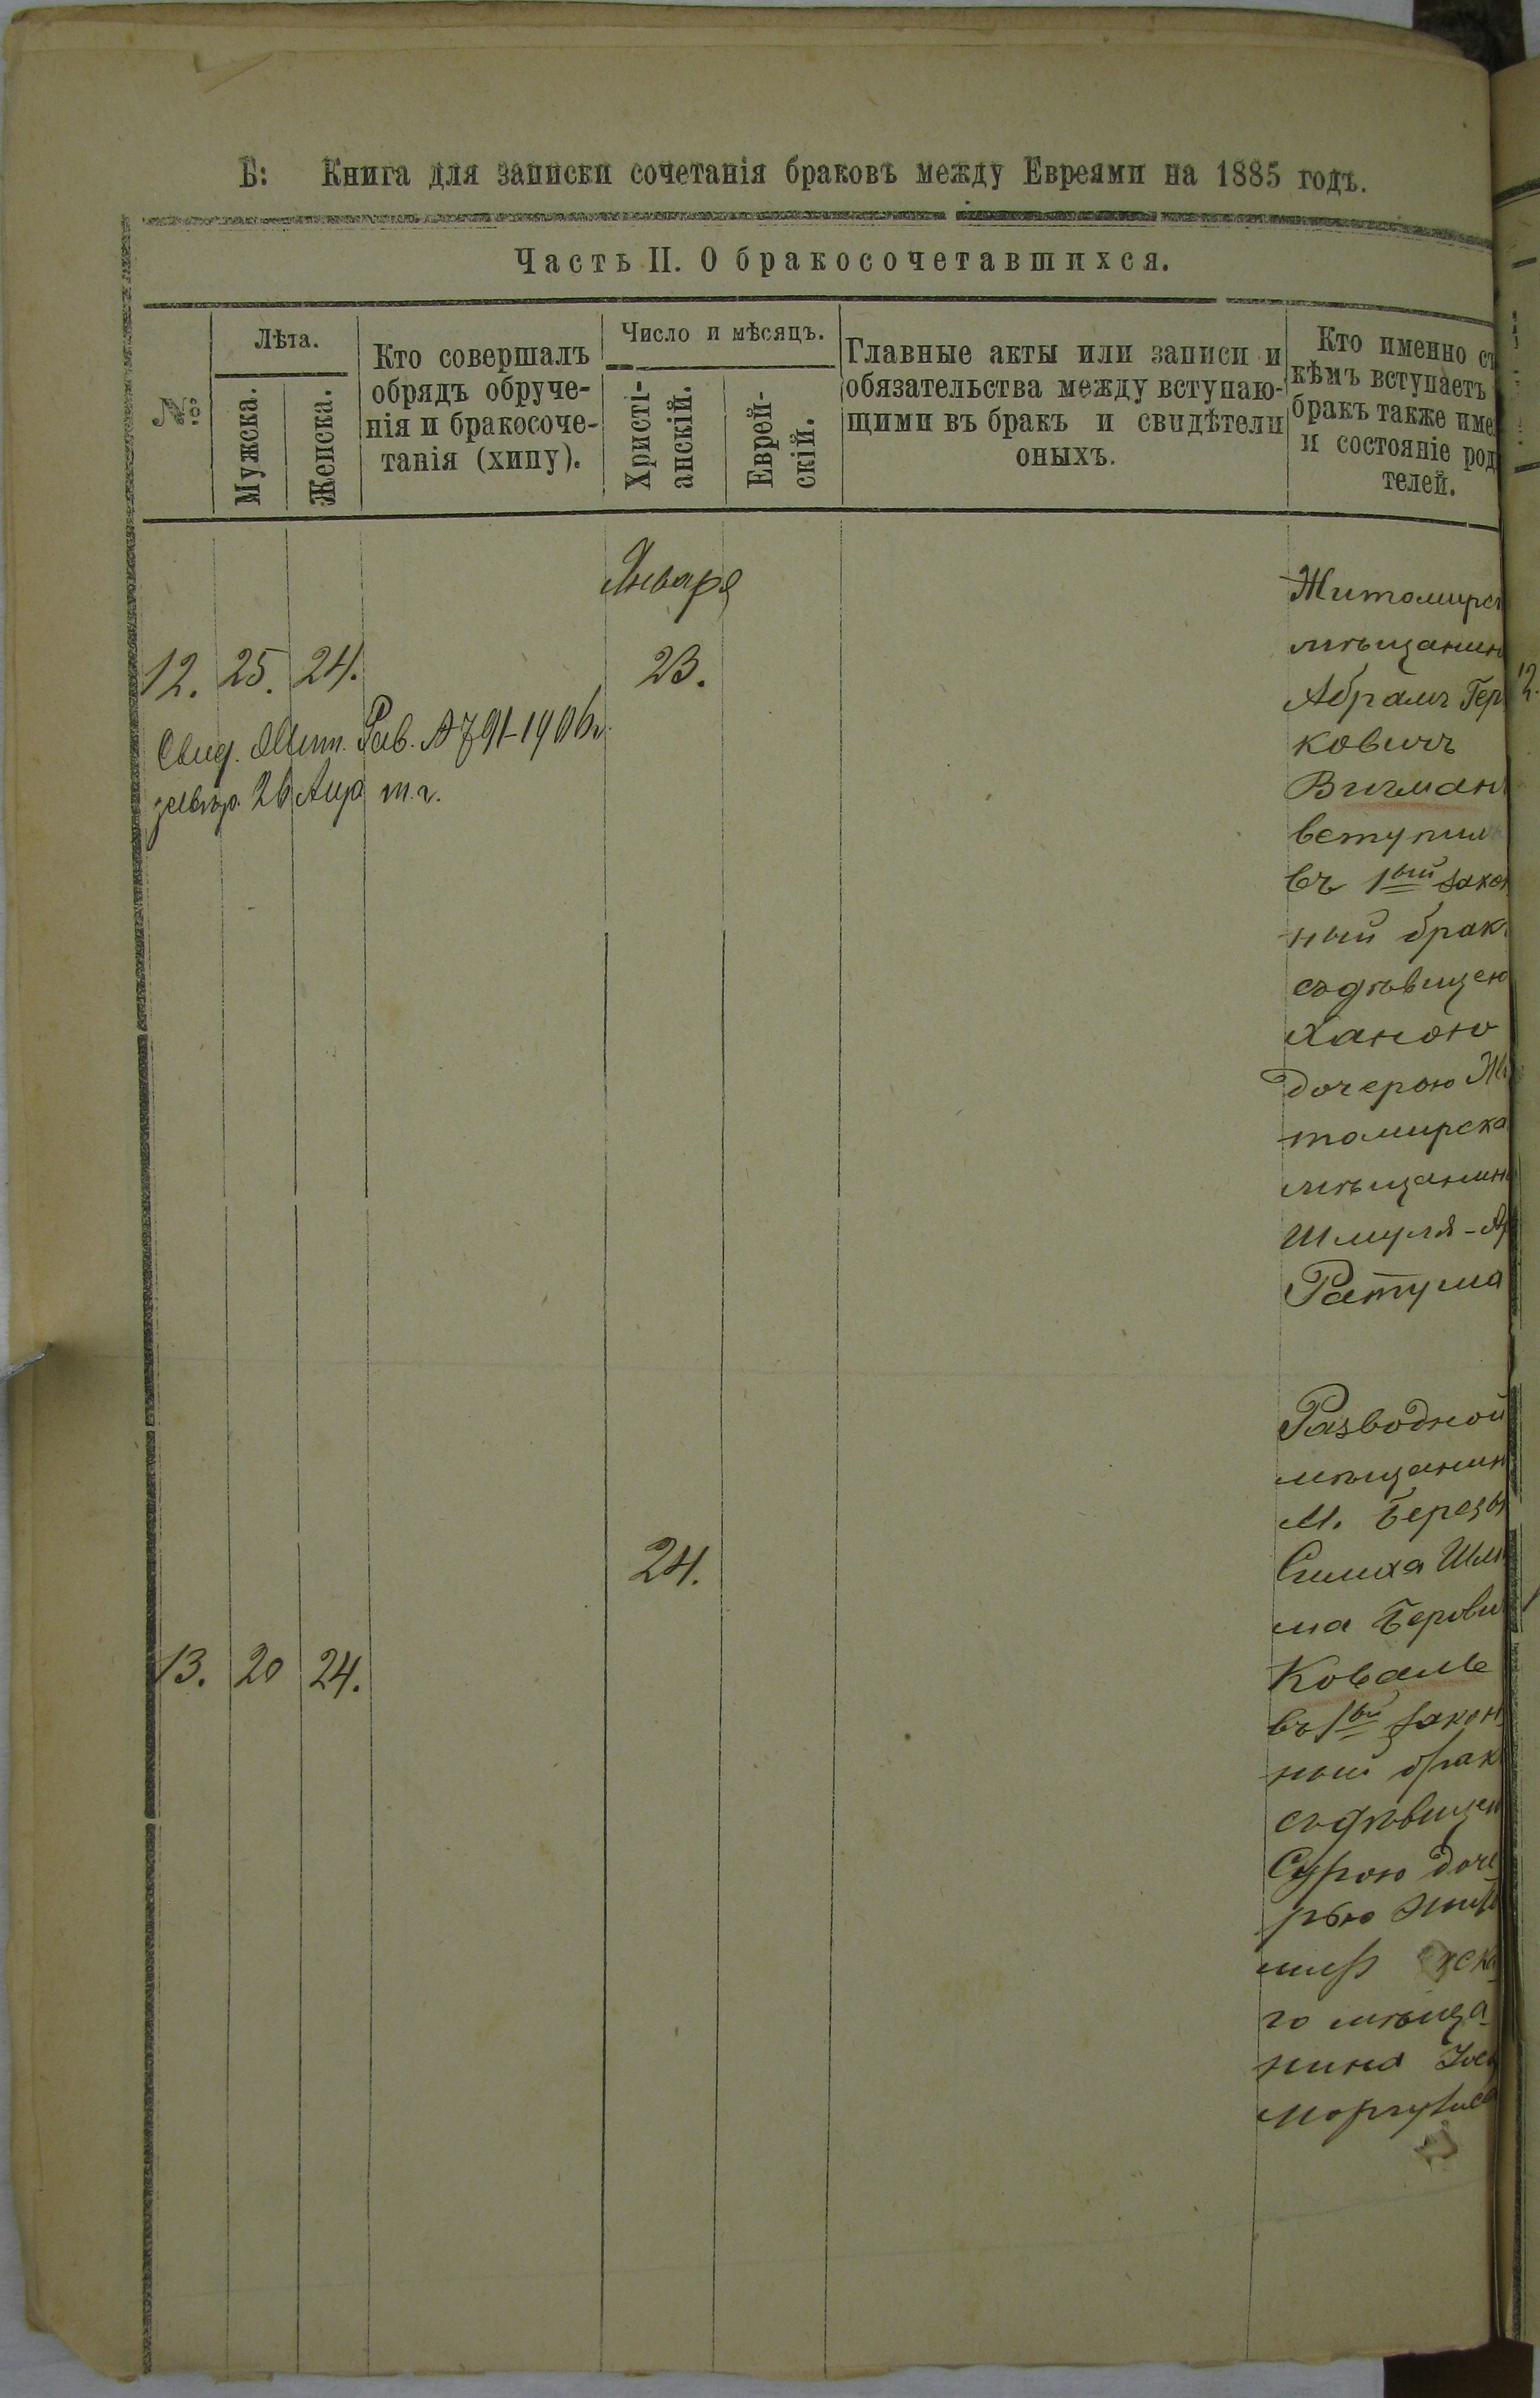 Б: Книга для записки сочетанія браковъ между Евреями на 1885 годъ.
Часть II. О бракосочетавшихся.
№
Лѣта.
Мужска.
Женска.
Кто совершалъ
обрядъ обруче-
нія и бракосоче-
танія (хипу).
Число и мѣсяцъ.
Христі-
анскій.
Еврей-
скій.
Главные акты или записи и
обязательства между вступаю-
щими въ бракъ и свидѣтели
оныхъ.
Кто именно съ
кѣмъ вступаетъ
бракъ также име
и состояніе род
телей.
Января
12. 25. 24.
23.
Свид. Рав. 791-1906г.
26 Апр т.г.
Житомирск
мѣщанин
Абрамъ Гер
ковичъ
Вигман
вступил
въ 1ый закон
ный брак
съ дѣвицею
Ханою
дочерью Жи
томирска
мѣщанин
Шмуля-
Ратума
13. 20 24.
24.
Разводной
мѣщанин
М. Березо
Симха Шл
ма Берови
Коваль
въ 1ый закон
ный брак
съ дѣвицею
Сурою доче
рью Жито
мир ска
го мѣща
нина